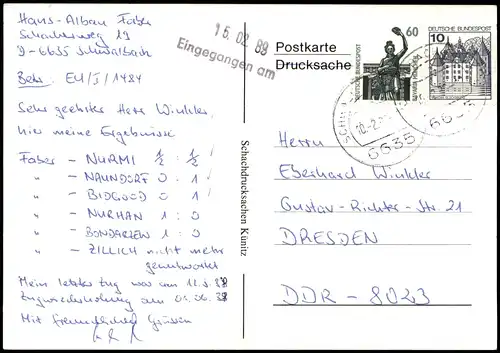 Hans-Alban Faber
Schachenweg 19
D-6635 Schwalbach
Betr. EU/I/1484
Sehr geehrter Herr Winkler,
hier meine Ergebnisse
Faber - NURMI ½ : ½
" - NAUNDORF 0 : 1
" - BIDGOOD 0 : 1
" - NURHAN 1 : 0
" - BONDARZEN 1 : 0
" - ZILLICH nicht mehr
geantwortet
Mein letzter Zug war am 12.3.88
Zugwiederholung am 05.06.88
Mit freundlichen Grüssen
15. 02. 89
Eingegangen am
Schachdrucksachen Künitz
Postkarte
Drucksache
60
DEUTSCHE BUNDESPOST
BAVARIA MÜNCHEN
10
DEUTSCHE BUNDESPOST
6635
663
Herrn
Eberhard Winkler
Gustav-Richter-Str. 21
DRESDEN
DDR-8023